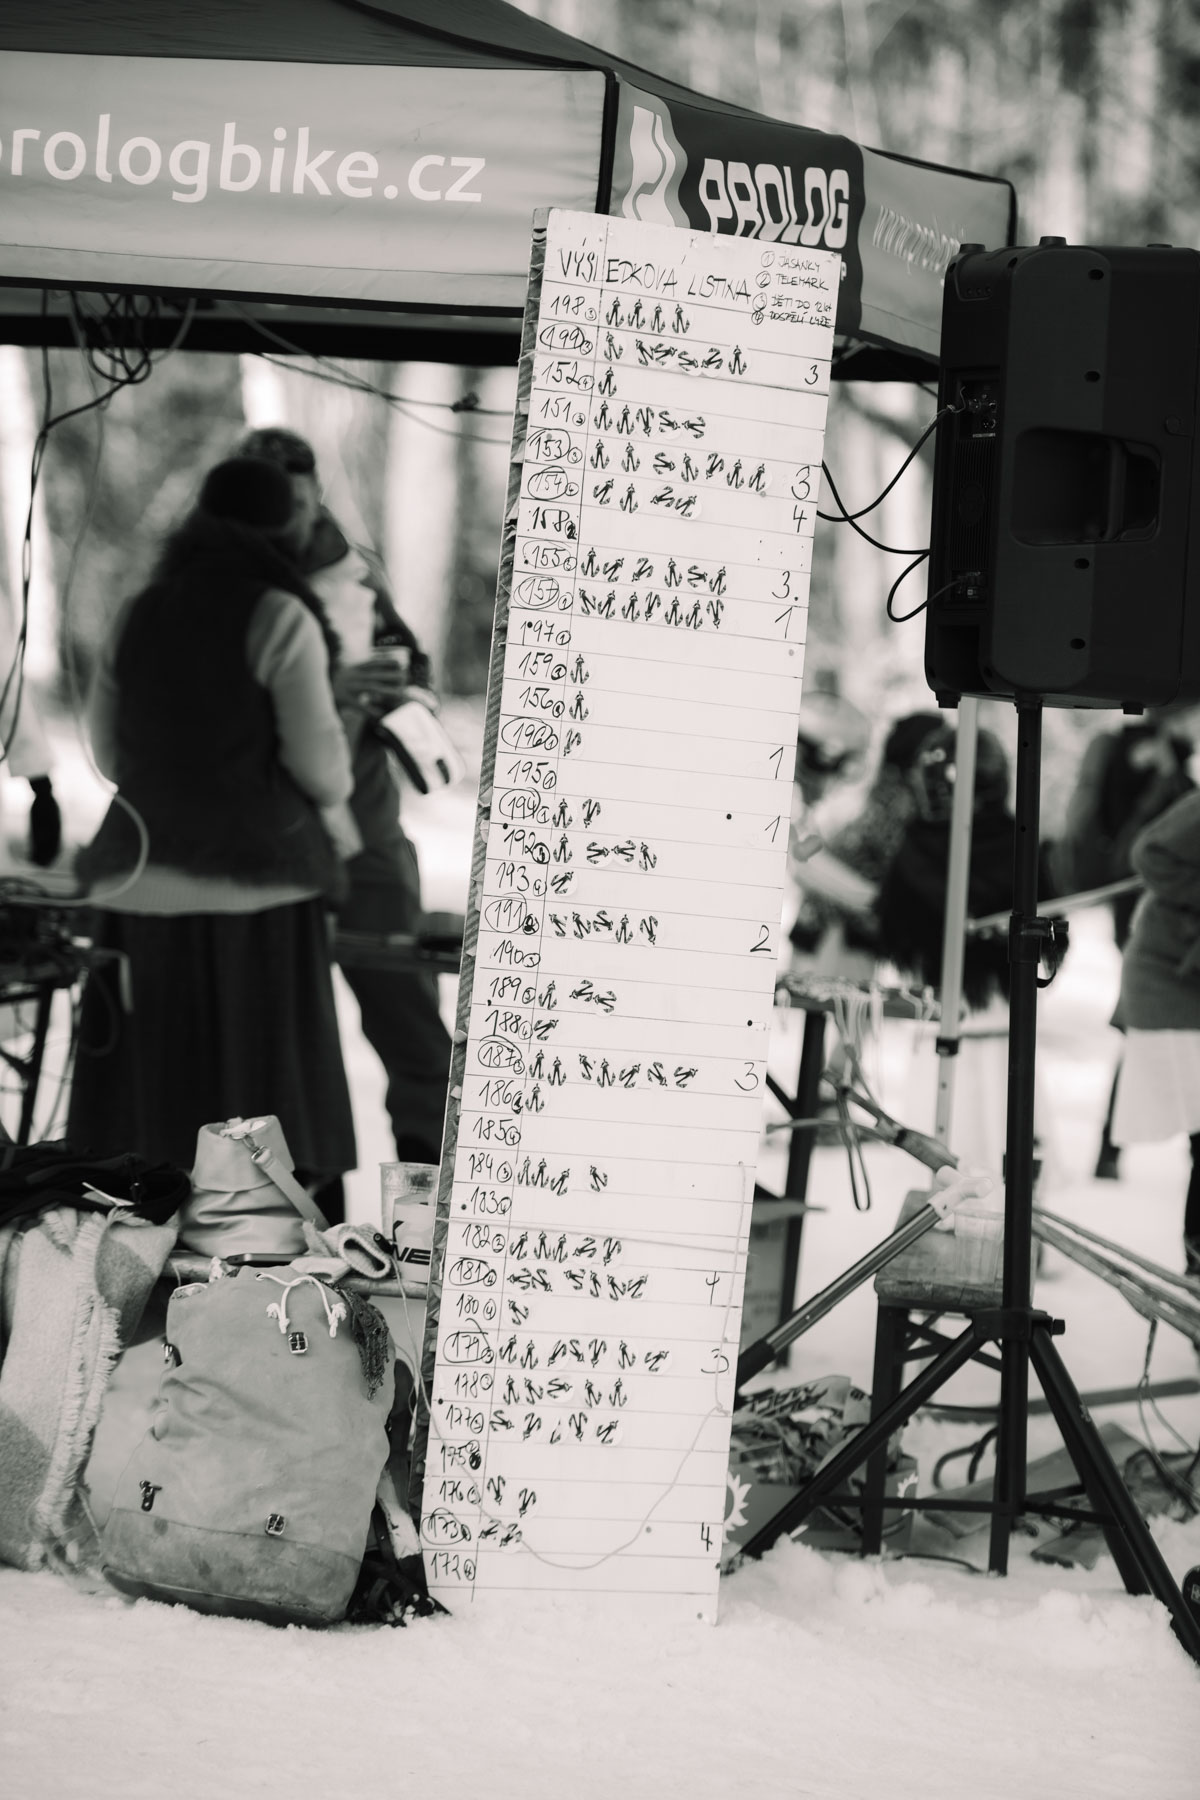 prologbike.cz
PROLOG
VÝSLEDKOVÁ LISTINA
① JASANKY
② TELEMARK
③ DĚTI DO 12 let
④ DOSPĚLÍ LYŽE
198 ③
199 ③ 3
152 ④
151 ③
153 ③ 3
154 ④ 4
158 ②
155 ③ 3.
157 ① 1
197 ①
159 ①
156
196 ① 1
195 ①
194 ① 1
192
193 ④
191 2
190 ③
189 ③
188 ④
187 ③ 3
186
185 ④
184 ③
183
182 ③
181 ④ 4
180 ④
179 ③ 3
178 ③
177
175
176
173 4
172 ④